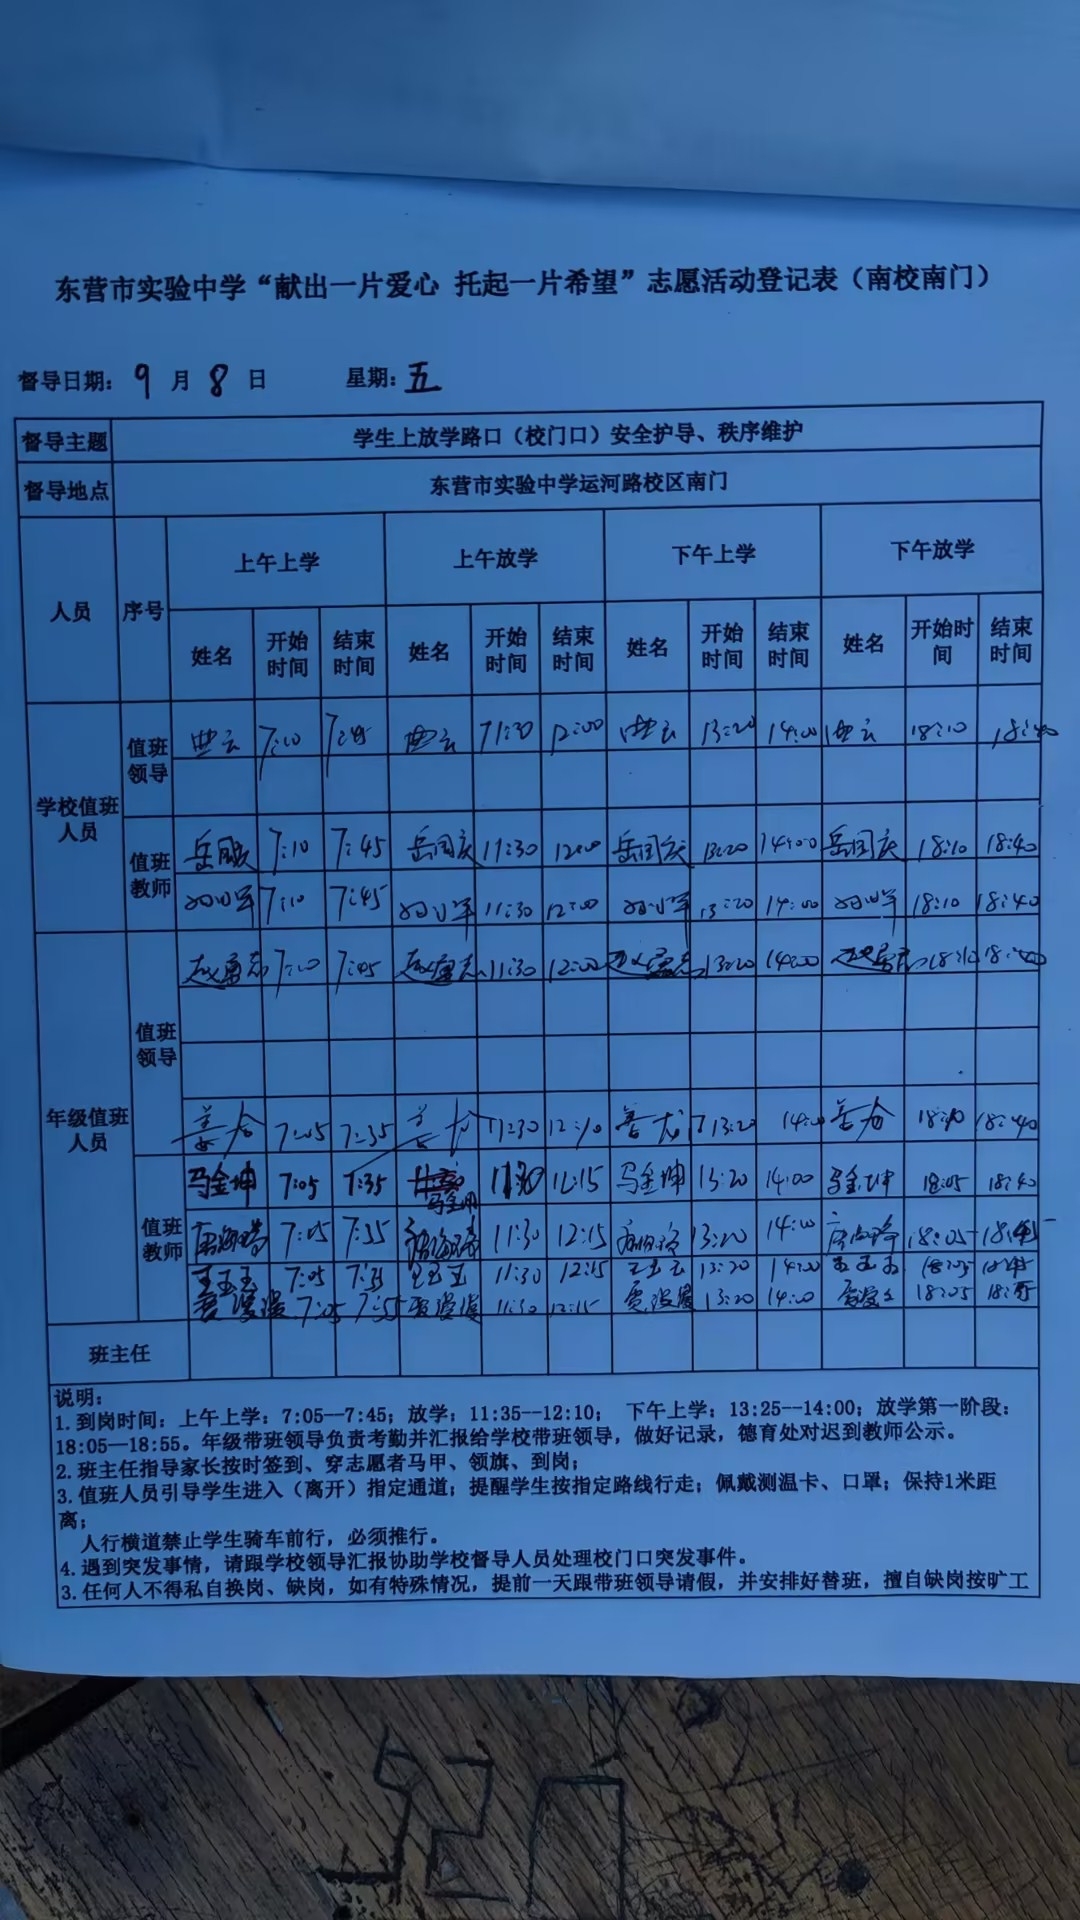 东营市实验中学“献出一片爱心 托起一片希望”志愿活动登记表（南校南门）
督导日期：9月8日 星期：五
督导主题 学生上放学路口（校门口）安全护导、秩序维护
督导地点 东营市实验中学运河路校区南门
人员 序号 上午上学 上午放学 下午上学 下午放学
姓名 开始时间 结束时间 姓名 开始时间 结束时间 姓名 开始时间 结束时间 姓名 开始时间 结束时间
学校值班人员 值班领导 曲云 7:10 7:45 曲云 11:30 12:00 曲云 13:20 14:00 曲云 18:10 18:40
值班教师 7:10 7:45 岳国庆 11:30 12:00 岳国庆 13:20 14:00 岳国庆 18:10 18:40
7:10 7:45 11:30 12:00 13:20 14:00 18:10 18:40
年级值班人员 值班领导 7:10 7:45 11:30 12:00 13:20 14:00 18:10 18:40
7:05 7:35 11:30 12:10 13:20 14:00 18:10 18:40
值班教师 马金坤 7:05 7:35 马金坤 11:30 12:15 马金坤 13:20 14:00 马金坤 18:05 18:40
7:05 7:35 11:30 12:15 13:20 14:00 18:05
王玉玉 7:05 7:35 王玉玉 11:30 12:15 王玉玉 13:20 14:00 王玉玉 18:05
7:05 7:35 11:30 12:15 13:20 14:00 18:05
班主任
说明：
1. 到岗时间：上午上学：7:05—7:45；放学：11:35—12:10； 下午上学：13:25—14:00；放学第一阶段：
18:05—18:55。年级带班领导负责考勤并汇报给学校带班领导，做好记录，德育处对迟到教师公示。
2. 班主任指导家长按时签到、穿志愿者马甲、领旗、到岗；
3. 值班人员引导学生进入（离开）指定通道；提醒学生按指定路线行走；佩戴测温卡、口罩；保持1米距
离；
人行横道禁止学生骑车前行，必须推行。
4. 遇到突发事情，请跟学校领导汇报协助学校督导人员处理校门口突发事件。
3. 任何人不得私自换岗、缺岗，如有特殊情况，提前一天跟带班领导请假，并安排好替班，擅自缺岗按旷工